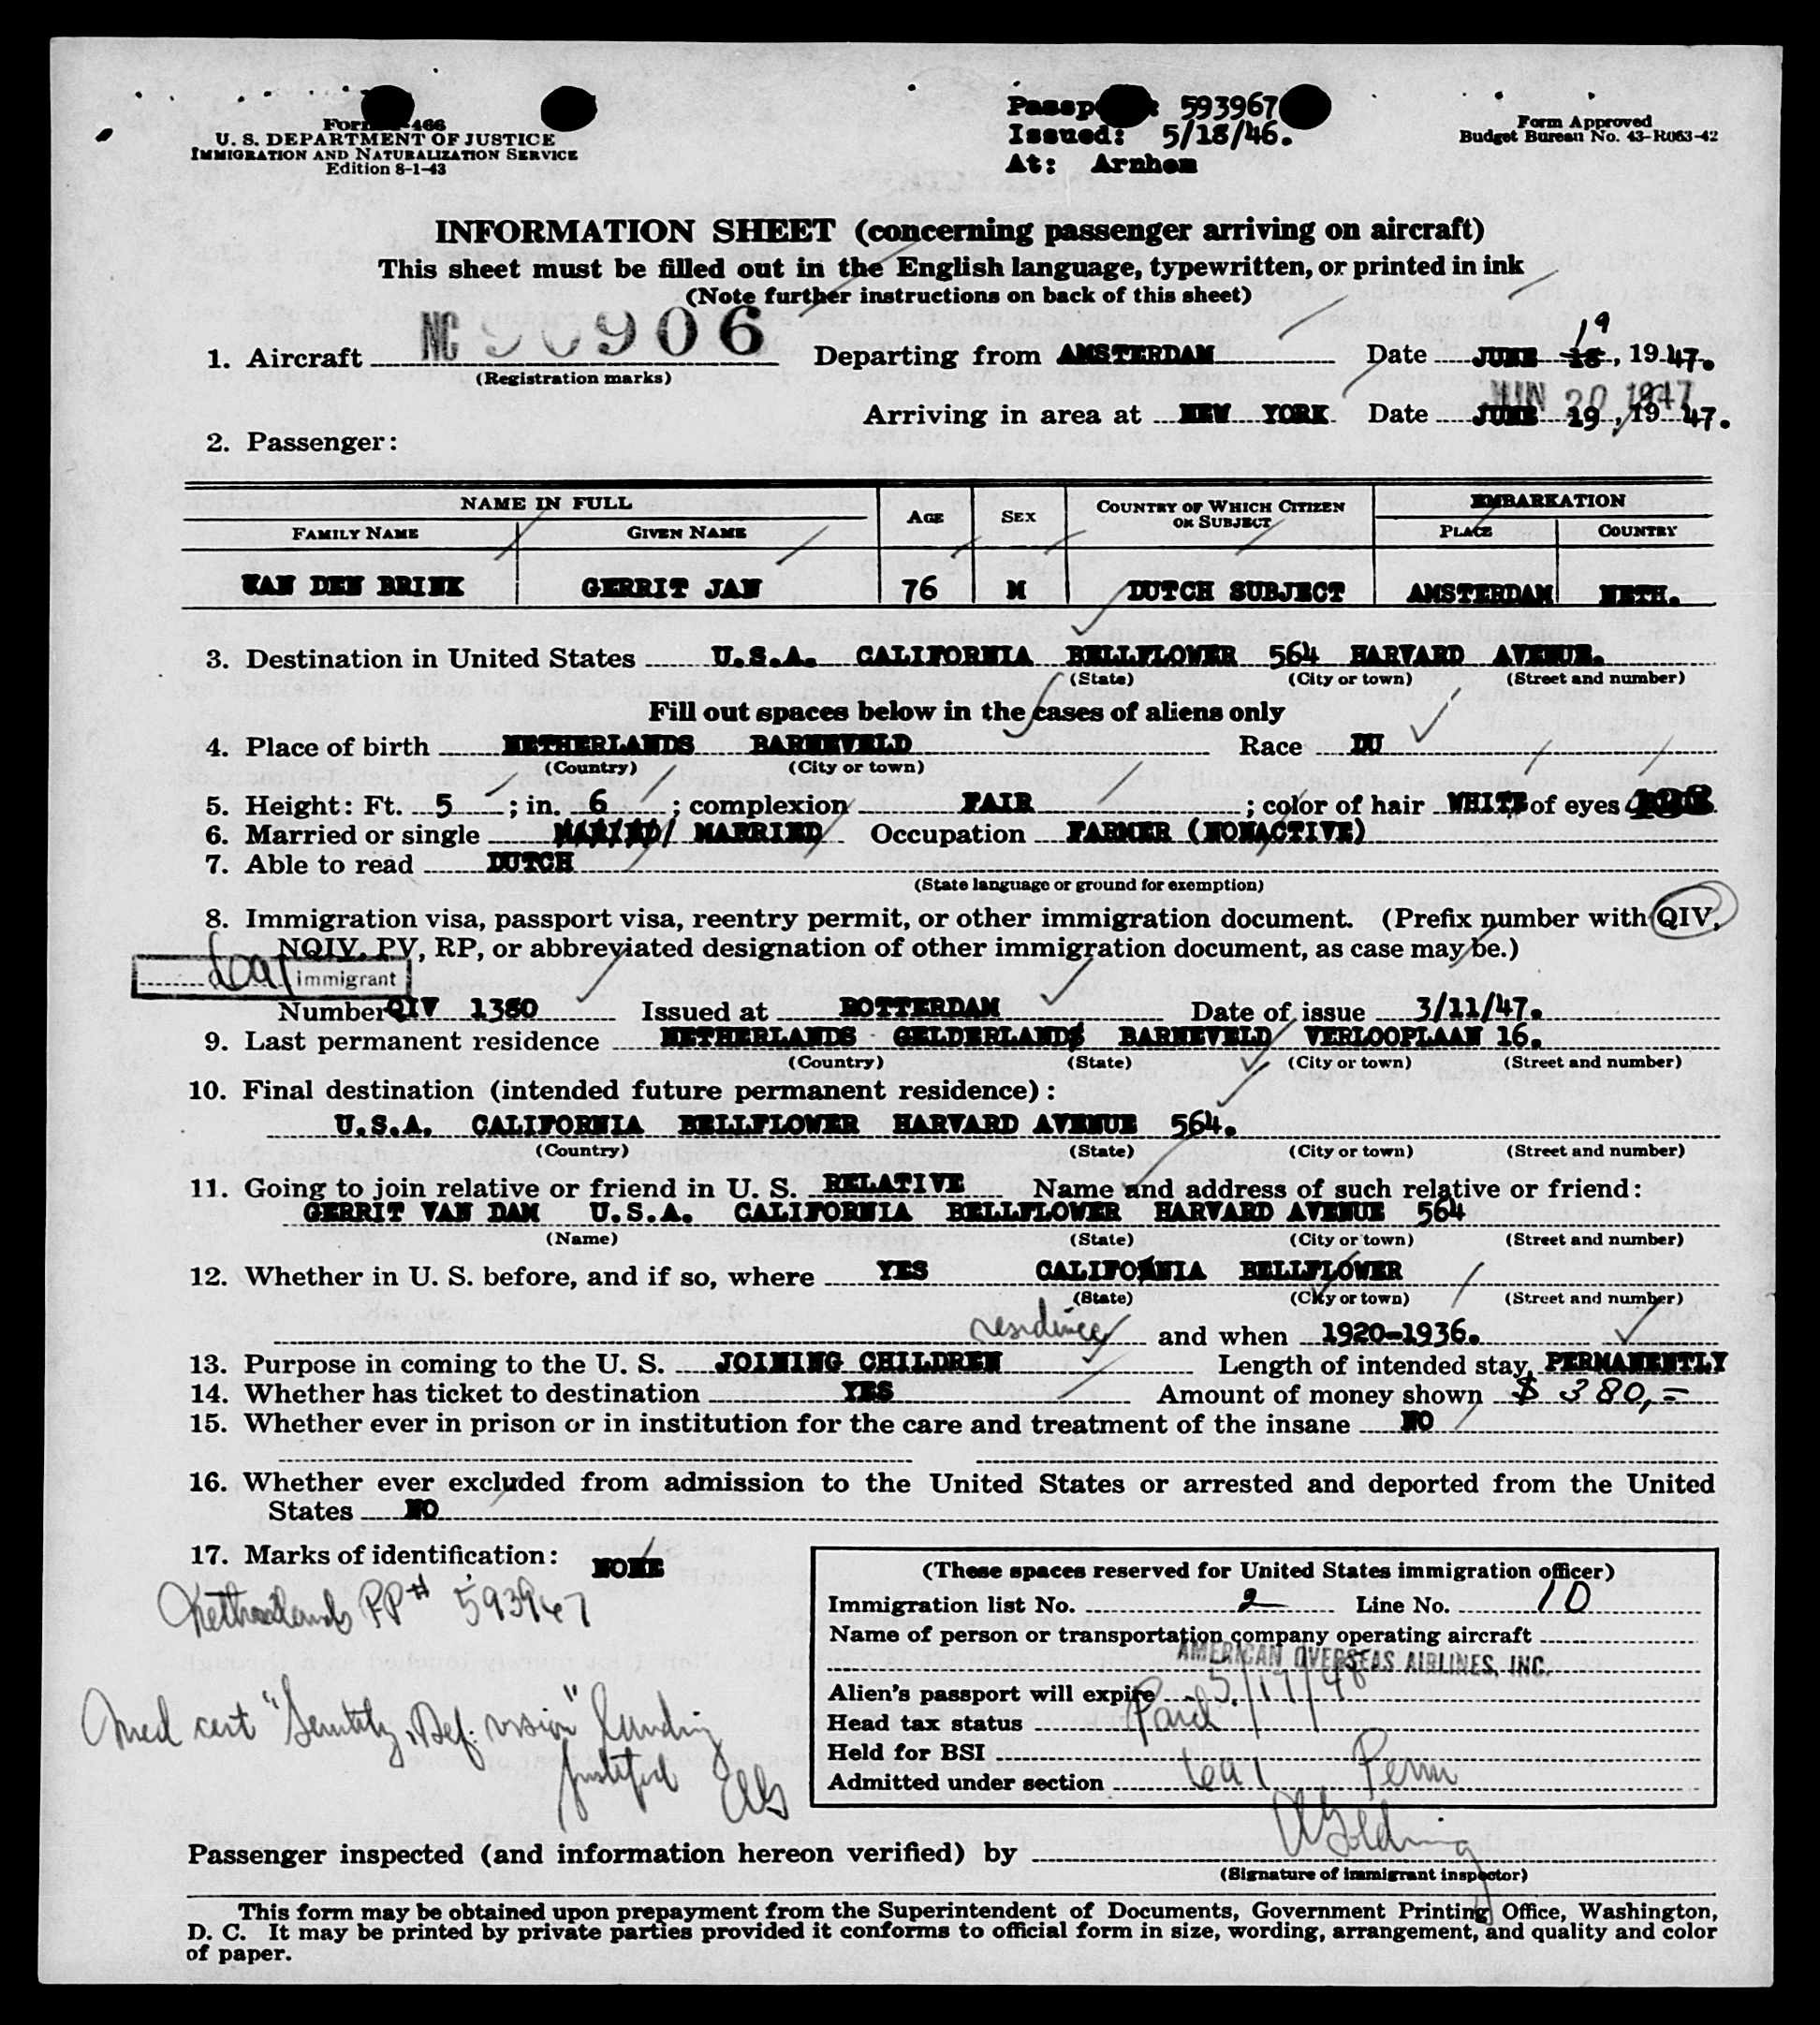 U. S. DEPARTMENT OF JUSTICE
IMMIGRATION AND NATURALIZATION SERVICE
Edition 8-1-43
593967
Issued: 5/18/46.
At: Arnhem
Form Approved
Budget Bureau No. 43-R063-42
INFORMATION SHEET (concerning passenger arriving on aircraft)
This sheet must be filled out in the English language, typewritten, or printed in ink
(Note further instructions on back of this sheet)
1. Aircraft NC 90906 Departing from AMSTERDAM Date JUNE 18 19, 19 47.
(Registration marks)
JUN 20 1947
Arriving in area at NEW YORK Date JUNE 19, 19 47.
2. Passenger:
NAME IN FULL AGE SEX COUNTRY OF WHICH CITIZEN OR SUBJECT EMBARKATION
FAMILY NAME GIVEN NAME PLACE COUNTRY
VAN DEN BRINK GERRIT JAN 76 M DUTCH SUBJECT AMSTERDAM NETH.
3. Destination in United States U.S.A. CALIFORNIA BELLFLOWER 564 HARVARD AVENUE.
(State) (City or town) (Street and number)
Fill out spaces below in the cases of aliens only
4. Place of birth NETHERLANDS BARNEVELD Race DU
(Country) (City or town)
5. Height: Ft. 5; in. 6; complexion FAIR; color of hair WHITE of eyes
6. Married or single MARRIED Occupation FARMER (NONACTIVE)
7. Able to read DUTCH
(State language or ground for exemption)
8. Immigration visa, passport visa, reentry permit, or other immigration document. (Prefix number with QIV,
NQIV, PV, RP, or abbreviated designation of other immigration document, as case may be.)
immigrant
Number QIV 1380 Issued at ROTTERDAM Date of issue 3/11/47.
9. Last permanent residence NETHERLANDS GELDERLAND BARNEVELD VERLOOPLAAN 16.
(Country) (State) (City or town) (Street and number)
10. Final destination (intended future permanent residence):
U.S.A. CALIFORNIA BELLFLOWER HARVARD AVENUE 564.
(Country) (State) (City or town) (Street and number)
11. Going to join relative or friend in U. S. RELATIVE Name and address of such relative or friend:
GERRIT VAN DAM U.S.A. CALIFORNIA BELLFLOWER HARVARD AVENUE 564
(Name) (State) (City or town) (Street and number)
12. Whether in U. S. before, and if so, where YES CALIFORNIA BELLFLOWER
(State) (City or town) (Street and number)
residence and when 1920-1936.
13. Purpose in coming to the U. S. JOINING CHILDREN Length of intended stay, PERMANENTLY
14. Whether has ticket to destination YES Amount of money shown $ 380,=
15. Whether ever in prison or in institution for the care and treatment of the insane NO
16. Whether ever excluded from admission to the United States or arrested and deported from the United
States NO
17. Marks of identification: NONE
Netherlands PP# 593967
Med cert "Senility, Def. vision" landing
justified
(These spaces reserved for United States immigration officer)
Immigration list No. 2 Line No. 10
Name of person or transportation company operating aircraft
AMERICAN OVERSEAS AIRLINES, INC.
Alien's passport will expire 5/17/48
Head tax status Paid
Held for BSI
Admitted under section 6a1 Perm
Passenger inspected (and information hereon verified) by
(Signature of immigrant inspector)
This form may be obtained upon prepayment from the Superintendent of Documents, Government Printing Office, Washington,
D. C. It may be printed by private parties provided it conforms to official form in size, wording, arrangement, and quality and color
of paper.